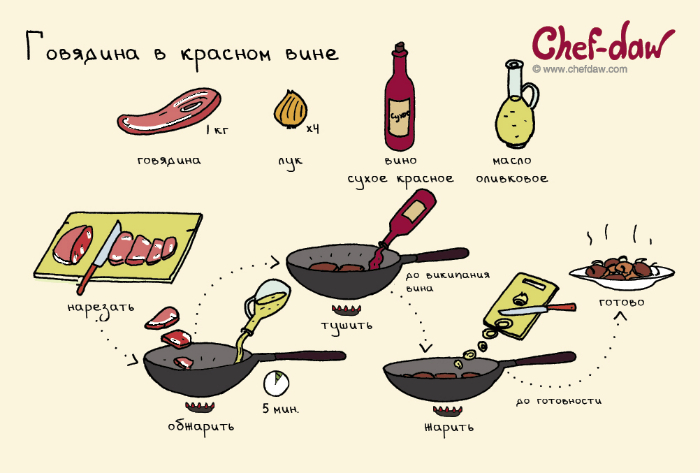 Говядина в красном вине
Chef-daw
© www.chefdaw.com
1 кг
x4
сухое
говядина
лук
вино
сухое красное
масло
оливковое
нарезать
обжарить
5 мин.
тушить
до википания
вина
жарить
до готовности
готово